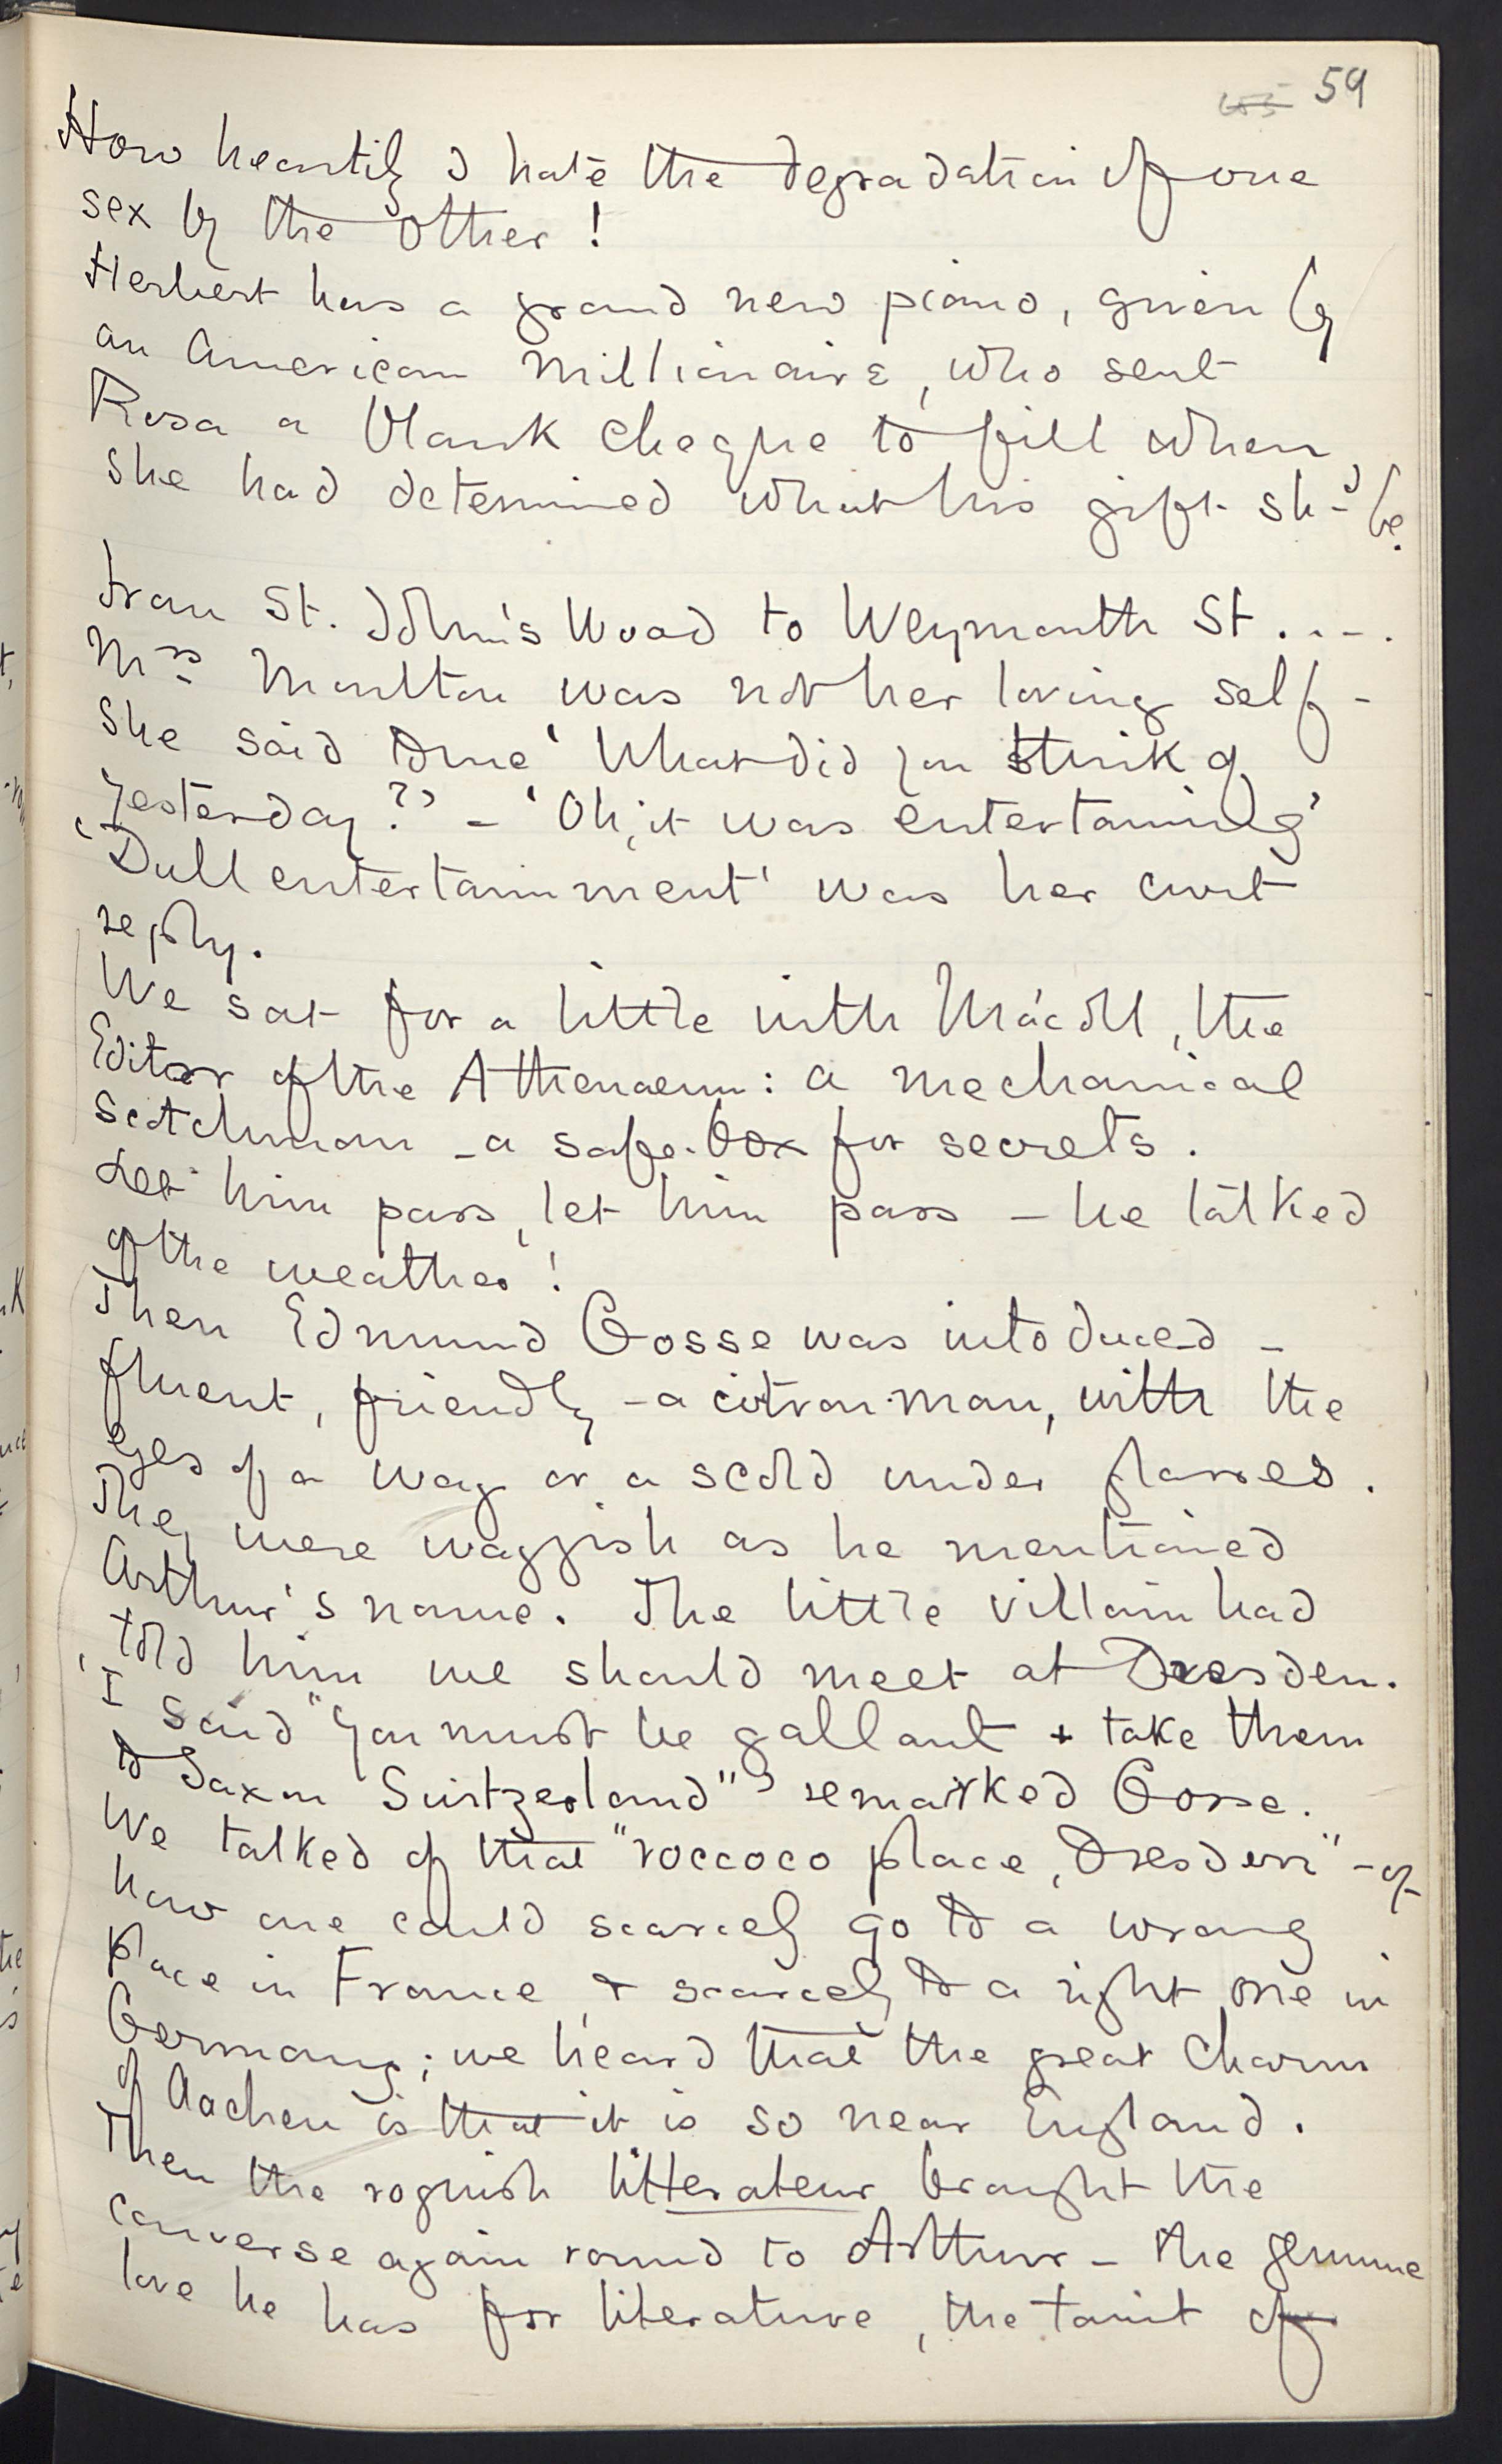 59
How heartily I hate the degradation of one
sex by the other!
Herbert has a grand new piano, given by
an American millionaire, who sent
Rosa a blank cheque to fill when
she had determined what his gift shd be.
From St. John's Wood to Weymouth St. ...
Mrs Moulton was not her loving self -
she said to me 'What did you think of
yesterday?' - 'Oh, it was entertaining'
'Dull entertainment' was her curt
reply.
We sat for a little with MacColl, the
Editor of the Athenaeum: a mechanical
Scotchman - a safe-box for secrets.
Let him pass, let him pass - he talked
of the weather!
Then Edmund Gosse was intoduced -
fluent, friendly - a citron-man, with the
eyes of a wag or a scold under glasses.
They were waggish as he mentioned
Arthur's name. The little villain had
told him we should meet at Dresden.
'I said "You must be gallant + take them
to Saxon Switzerland"' remarked Gosse.
We talked of that "roccoco place, Dresden" - of
how one could scarcely go to a wrong
place in France, & scarcely to a right one in
Germany; we heard that the great charm
of Aachen is that it is so near England.
Then the roguish litterateur brought the
converse again round to Arthur - the genuine
love he has for literature, the taint of